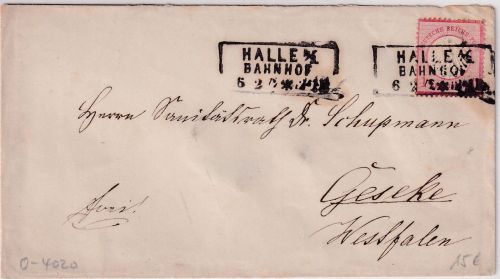 DEUTSCHE REICHS-POST
HALLE
BAHNHOF
6 2
HALLE
BAHNHOF
6 2
Herrn Sanitätsrath Dr. Schupmann
Geseke
Westfalen
frei.
O-4020
15€